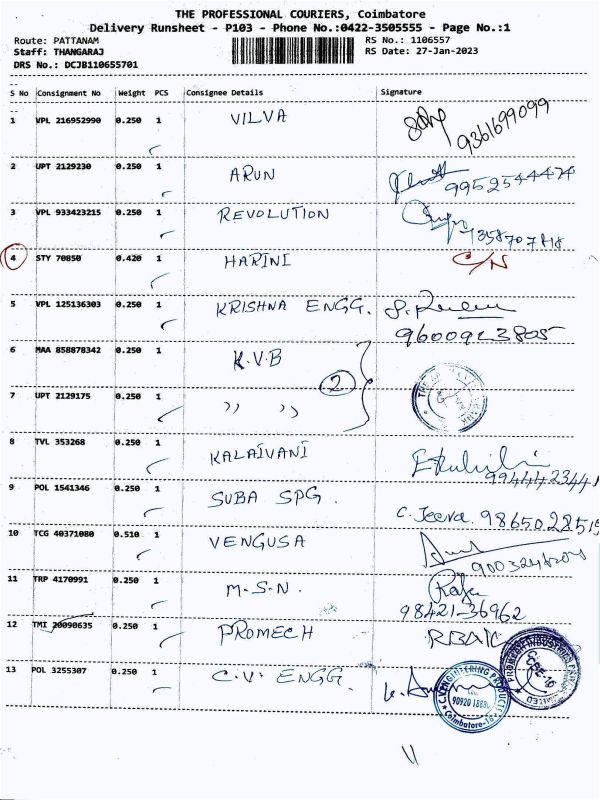 THE PROFESSIONAL COURIERS, Coimbatore
Delivery Runsheet - P103 - Phone No.:0422-3505555 - Page No.:1
Route: PATTANAM RS No.: 1106557
Staff: THANGARAJ RS Date: 27-Jan-2023
DRS No.: DCJB110655701
S No Consignment No Weight PCS Consignee Details Signature
1 VPL 216952990 0.250 1 VILVA 9361699099
2 UPT 2129230 0.250 1 ARUN 9952544474
3 VPL 933423215 0.250 1 REVOLUTION
4 STY 70850 0.420 1 HARINI C/N
5 VPL 125136303 0.250 1 KRISHNA ENGG.
9600923805
6 MAA 858878342 0.250 1 K.V.B
2
7 UPT 2129175 0.250 1 ,, ,,
8 TVL 353268 0.250 1 KALAIVANI
9 POL 1541346 0.250 1 SUBA SPG. C. Jeeva. 9865028515
10 TCG 40371080 0.510 1 VENGUSA
11 TRP 4170991 0.250 1 M.S.N.
98421-36962
12 TMI 20090635 0.250 1 PROMECH
13 POL 3255307 0.250 1 C.V. ENGG.
C.V.ENGINEERING PRODUCTS
Coimbatore-16